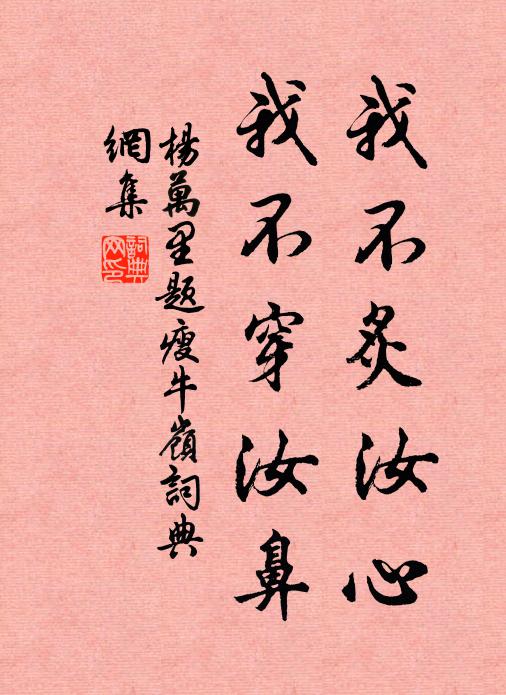 我不炙汝心
我不穿汝鼻
楊萬里題瘦牛嶺詞典
網集
詞典
网印